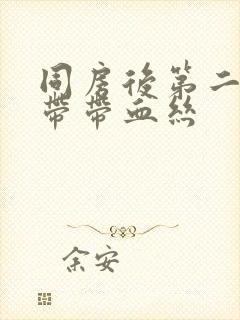 同房後第二
帶帶血絲
余安